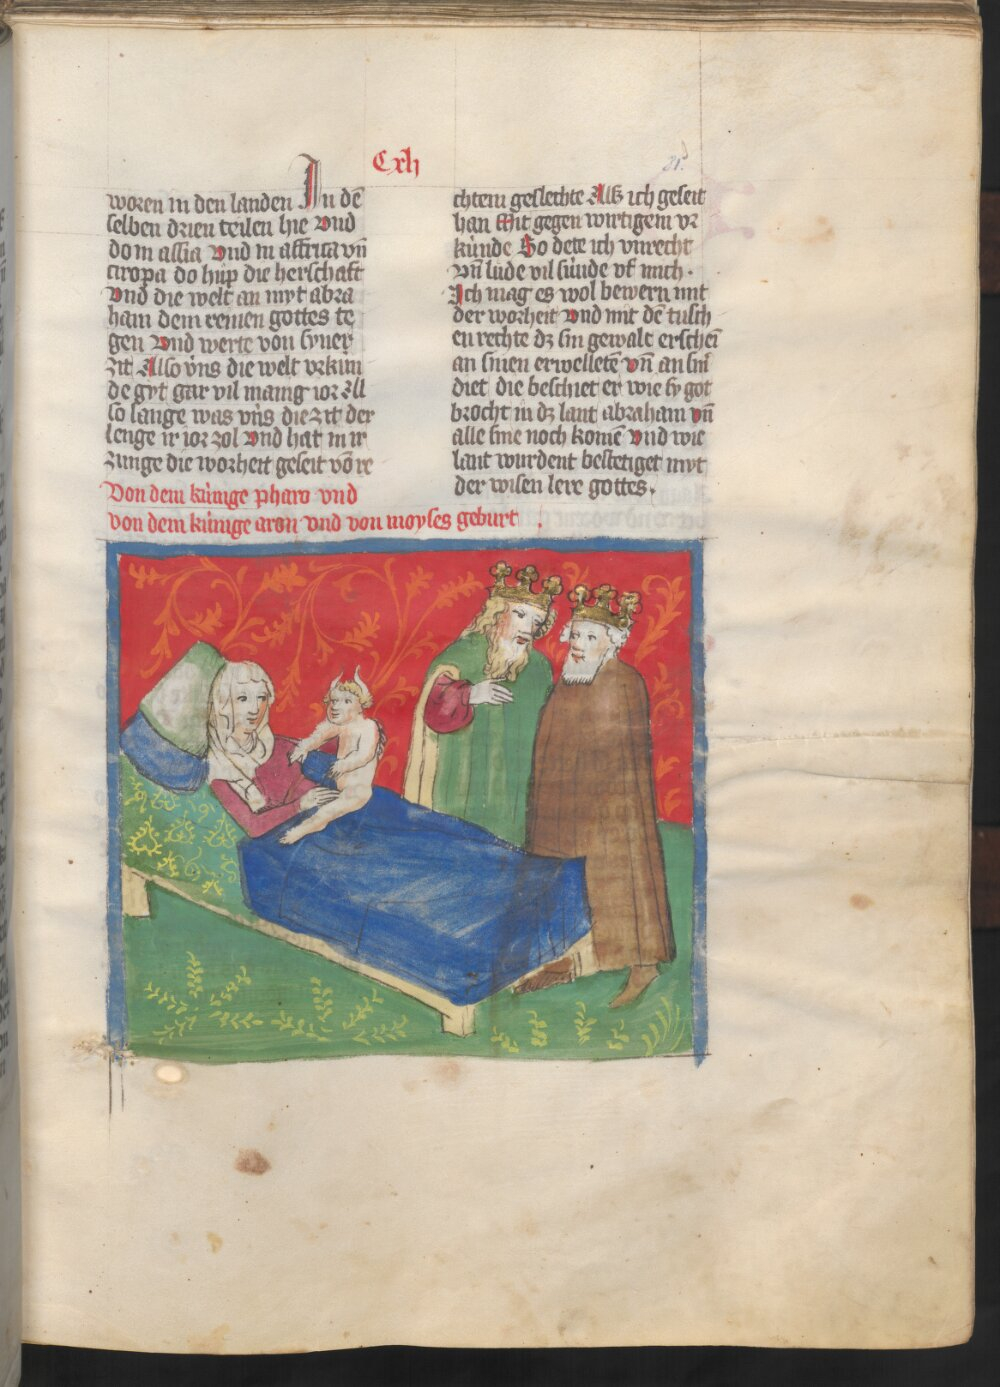 Cxlj
woren in den landen In dē
selben drien teilen hie vnd
do in assia vnd in affrica vn̄
europa do hüp die herschaft
vnd die welt an myt abra
ham dem reinen gottes te
gen vnd werte von syner
zit Also vns die welt vrkun
de gyt gar vil manig ior All
so lange was vns die zit der
lenge ir ior zol vnd hat in ir
zunge die worheit geseit vō re
chtem geslechte Alß ich geseit
han Mit gegen wirtigem vr
kúnde So dete ich vnrecht
vn̄ lude vil súnde vf mich.
Ich mag es wol bewern mit
der worheit vnd mit dē tusch
en rechte dz sin gewalt erscheī
an sinen erwelletē vn̄ an sinr̄
diet die beschiet er wie sy got
brocht in dz lant abraham vn̄
alle sine noch komē vnd wie
lant wurdent bestetiget myt
der wisen lere gottes.
Von dem kúnige pharo vnd
von dem kúnige aron vnd von moyses geburt